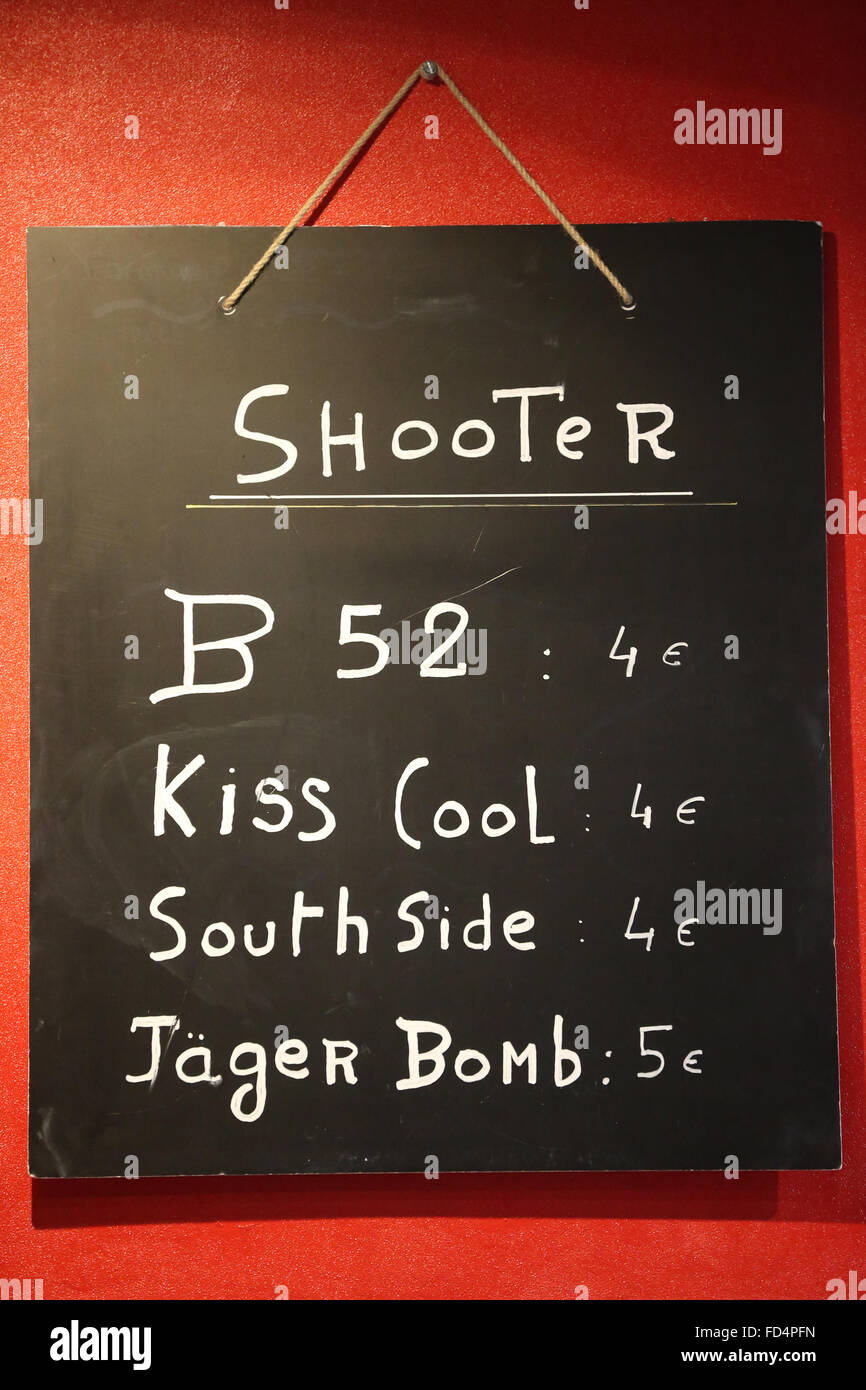 SHOOTER
B 52 : 4 €
Kiss Cool : 4 €
South Side : 4 €
Jäger Bomb : 5 €
alamy stock photo
FD4PFN
www.alamy.com